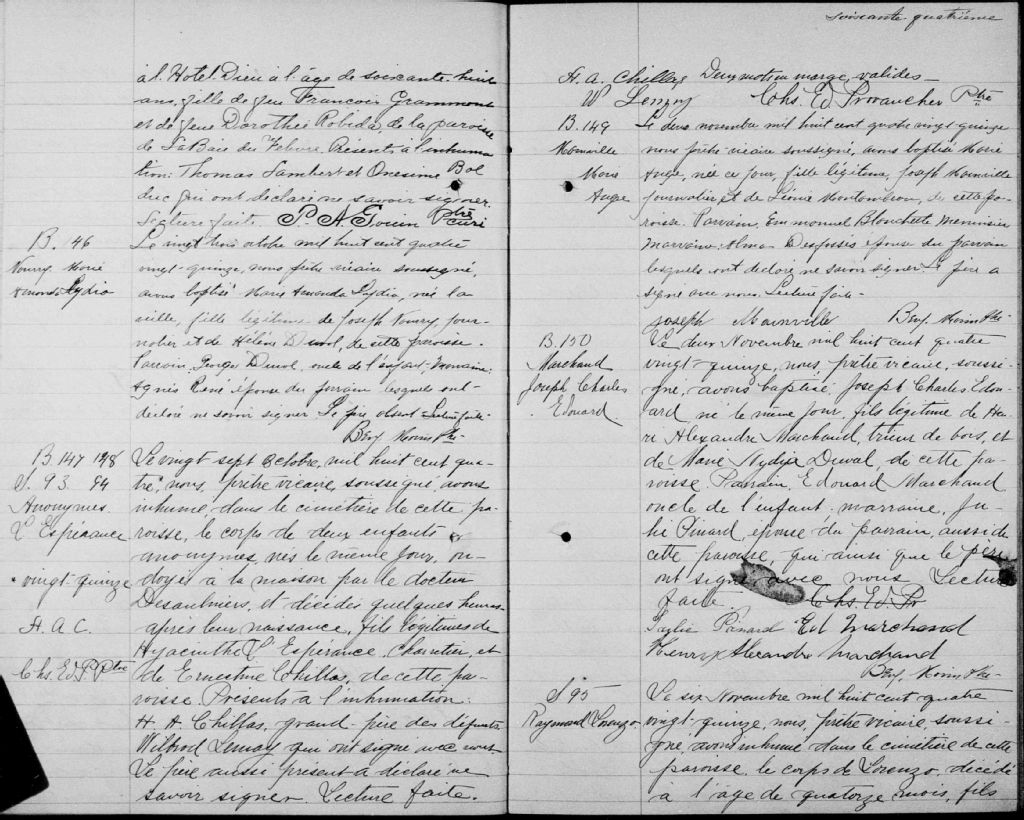 à l'Hotel Dieu à l'âge de soixante huit
ans, fille de feu François Grammont
et de feue Dorothée Robida, de la paroisse
de LaBaie du Febvre. Présents à l'inhuma
tion: Thomas Lambert et Onesime Bol
duc qui ont déclaré ne savoir signer.
Lecture faite. Ptre curé
B. 146
Nourry Marie
Amanda Lydia
Le vingt trois octobre mil huit cent quatre
vingt-quinze, nous prêtre vicaire soussigné,
avons baptisé Marie Amanda Lydia, née la
veille, fille légitime de Joseph Nourry, jour-
nalier et de Hélène Duval, de cette paroisse.
Parrain, Georges Duval, oncle de l'enfant-marraine:
Agnès René épouse du parrain lesquels ont
déclaré ne savoir signer Le père absent Lecture faite-
Benj. Morin Ptre-
B. 147 148
S. 93. 94
Anonymes.
L'Espérance
vingt-quinze
H. A. C.
Chs. Ed. P. Ptre
Le vingt sept octobre, mil huit cent qua-
tre, nous, prêtre vicaire, soussigné, avons
inhumé, dans le cimetière de cette pa-
roisse, le corps de deux enfants
anonymes, nés le même jour, on-
doyés à la maison par le docteur
Desaulniers, et décédés quelques heures
après leur naissance, fils légitimes de
Hyacinthe L'Espérance, Charretier, et
de Ernestine Chillas, de cette pa-
roisse. Présents à l'inhumation:
H. A Chillas, grand-père des défunts
Wilbrod Lemay qui ont signé avec nous.
Le père aussi présent a déclaré ne
savoir signer. Lecture faite.
soixante-quatrième
H. A. Chillas Deux mots en marge, valides-
W Lemay Chs. Ed. Provancher Ptre
B. 149
Mainville
Marie
Auge
Le deux novembre mil huit cent quatre vingt-quinze
nous prêtre-vicaire soussigné, avons baptisé Marie
Auge, née ce jour, fille légitime, Joseph Mainville
journalier et de Léonie Montambeau, de cette pa-
roisse. Parrain, Emmanuel Blanchette menuisier
marraine, Alma Desfossés épouse du parrain
lesquels ont déclaré ne savoir signer Le père a
signé avec nous. Lecture faite-
Joseph Mainville Benj. Morin Ptre-
B. 150
Marchand
Joseph Charles
Edouard
Le deux Novembre mil huit cent quatre
vingt-quinze, nous, prêtre vicaire, soussi-
gné, avons baptisé Joseph Charles Edou-
ard né le même jour, fils légitime de Hen-
ri Alexandre Marchand, trieur de bois, et
de Marie Nydia Duval, de cette pa-
roisse. Parrain, Edouard Marchand
oncle de l'enfant, marraine, Ju-
lie Pinard, épouse du parrain, aussi de
cette paroisse, qui ainsi que le père
ont signé avec nous Lecture
faite. Chs. Ed Pr
Julie Pinard Ed Marchand
Henry Alexandre Marchand
Benj. Morin Ptre-
S 95
Raymond Lorenzo
Le six Novembre mil huit cent quatre
vingt-quinze, nous, prêtre vicaire soussi-
gné, avons inhumé dans le cimetière de cette
paroisse, le corps de Lorenzo, décédé
à l'âge de quatorze mois, fils